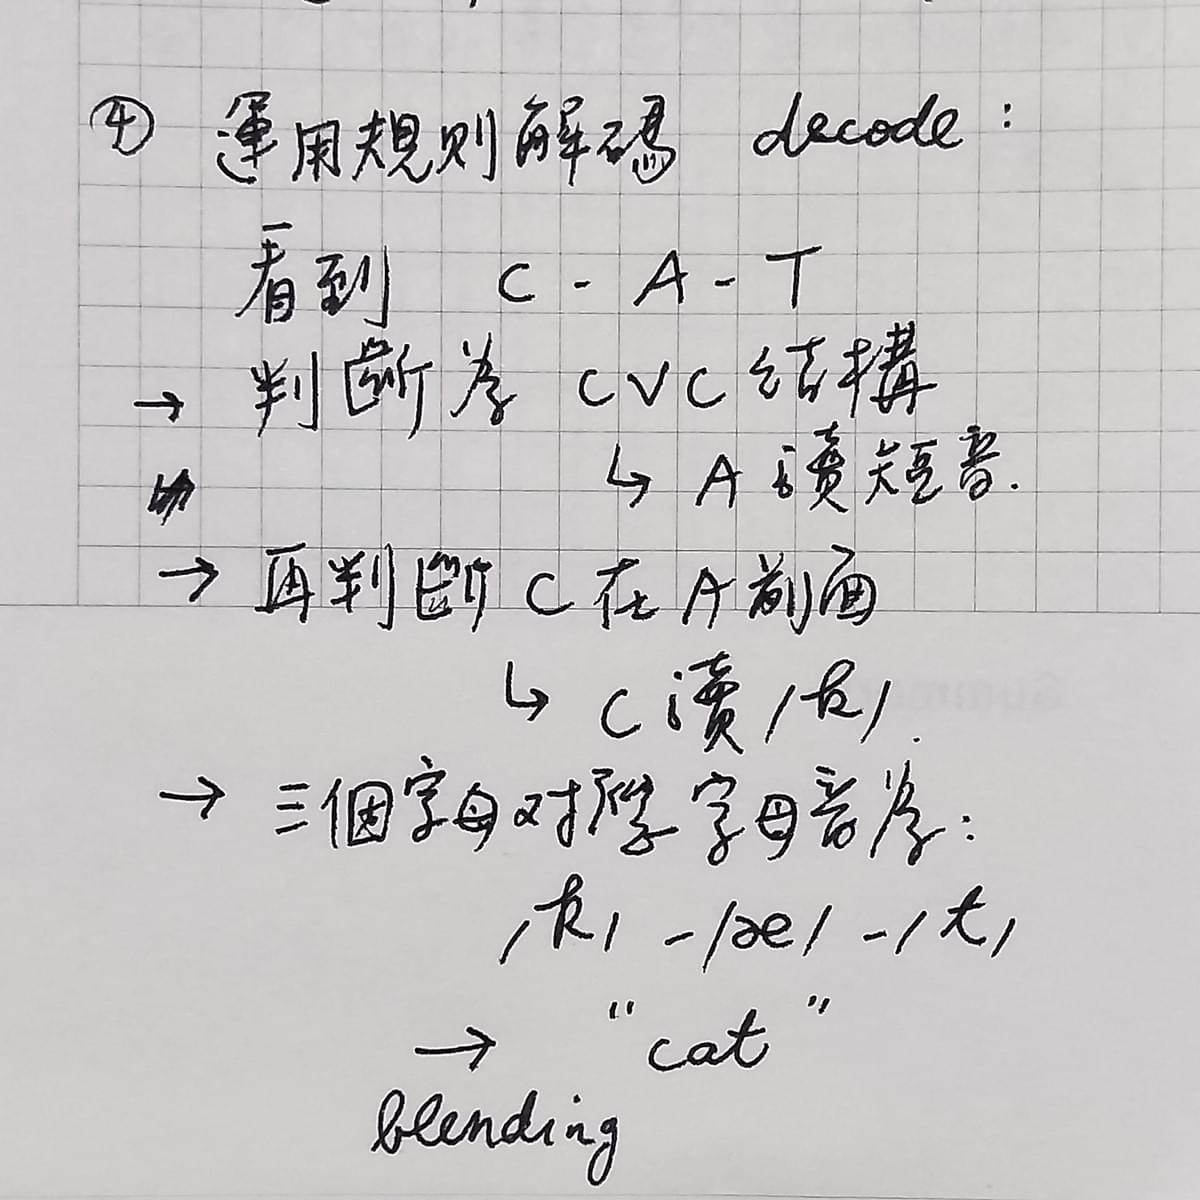 ④ 運用規則解碼 decode:
看到 C - A - T
→ 判斷為 CVC 結構
↳ A 讀短音.
→ 再判斷 C 在 A 前面
↳ C 讀 /k/.
→ 三個字母对應字母音為:
/k/ - /æ/ - /t/
→ "cat"
blending